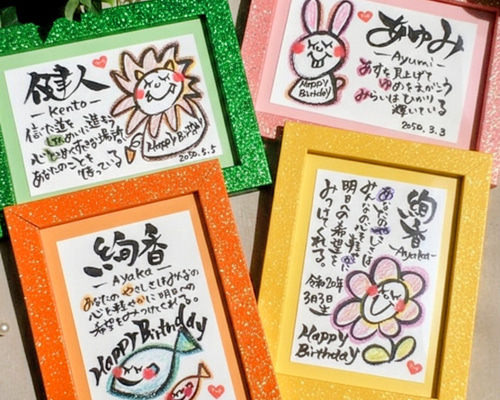 健人
-Kento-
信じた道を
けんめいに進もう
あなたのことを
待っている
Happy Birthday
2050.5.5
あゆみ
-Ayumi-
あすを見上げて
ゆめをえがこう
みらいはひかり
輝いている
2050.3.3
Happy
Birthday
絢香
-Ayaka-
あなたのやさしさはみんなの
心を軽やかに明日への
希望をみつけてくれる。
Happy Birthday
絢香
-Ayaka-
あなたのやさしさは
みんなの心を軽やかに
明日への希望を
みつけてくれる。
令和20年
3月3日
生
Happy
Birthday